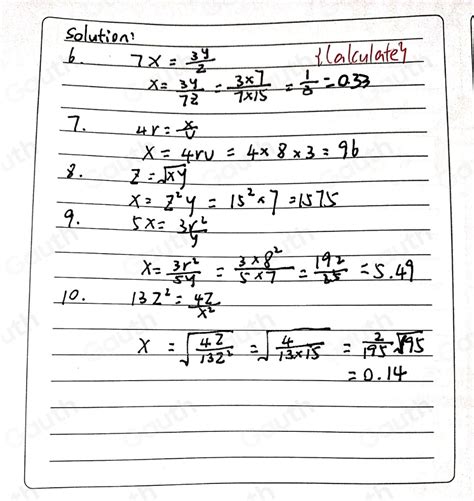 Solution:
6. 7x = 3y/z {Calculate}
x = 3y/7z = 3×7/7×15 = 1/5 = 0.33
7. 4r = x/v
x = 4rv = 4×8×3 = 96
8. z = √xy
x = z²y = 15²×7 = 1575
9. 5x = 3r²/y
x = 3r²/5y = 3×8²/5×7 = 192/35 = 5.49
10. 13z² = 4z/x²
x = √4z/13z² = √4/13×15 = 2/195 √195
= 0.14